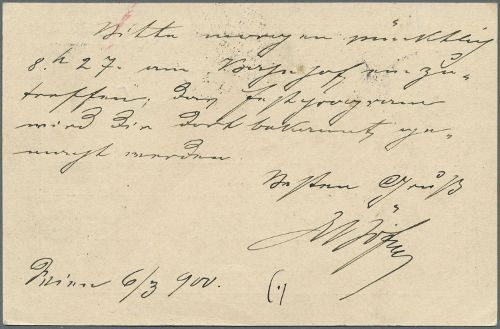 Bitte morgen pünktlich
8.h 27. am Bahnhof einzu-
treffen, das Festprogramm
wird Dir dort bekannt ge-
macht werden.
Besten Gruß
6/3 900.
(.)